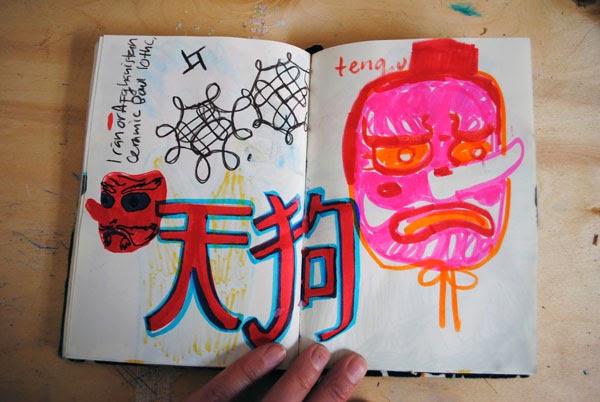 Iran or Afghanistan
Ceramic Bowl 10thc.
tengu
天狗